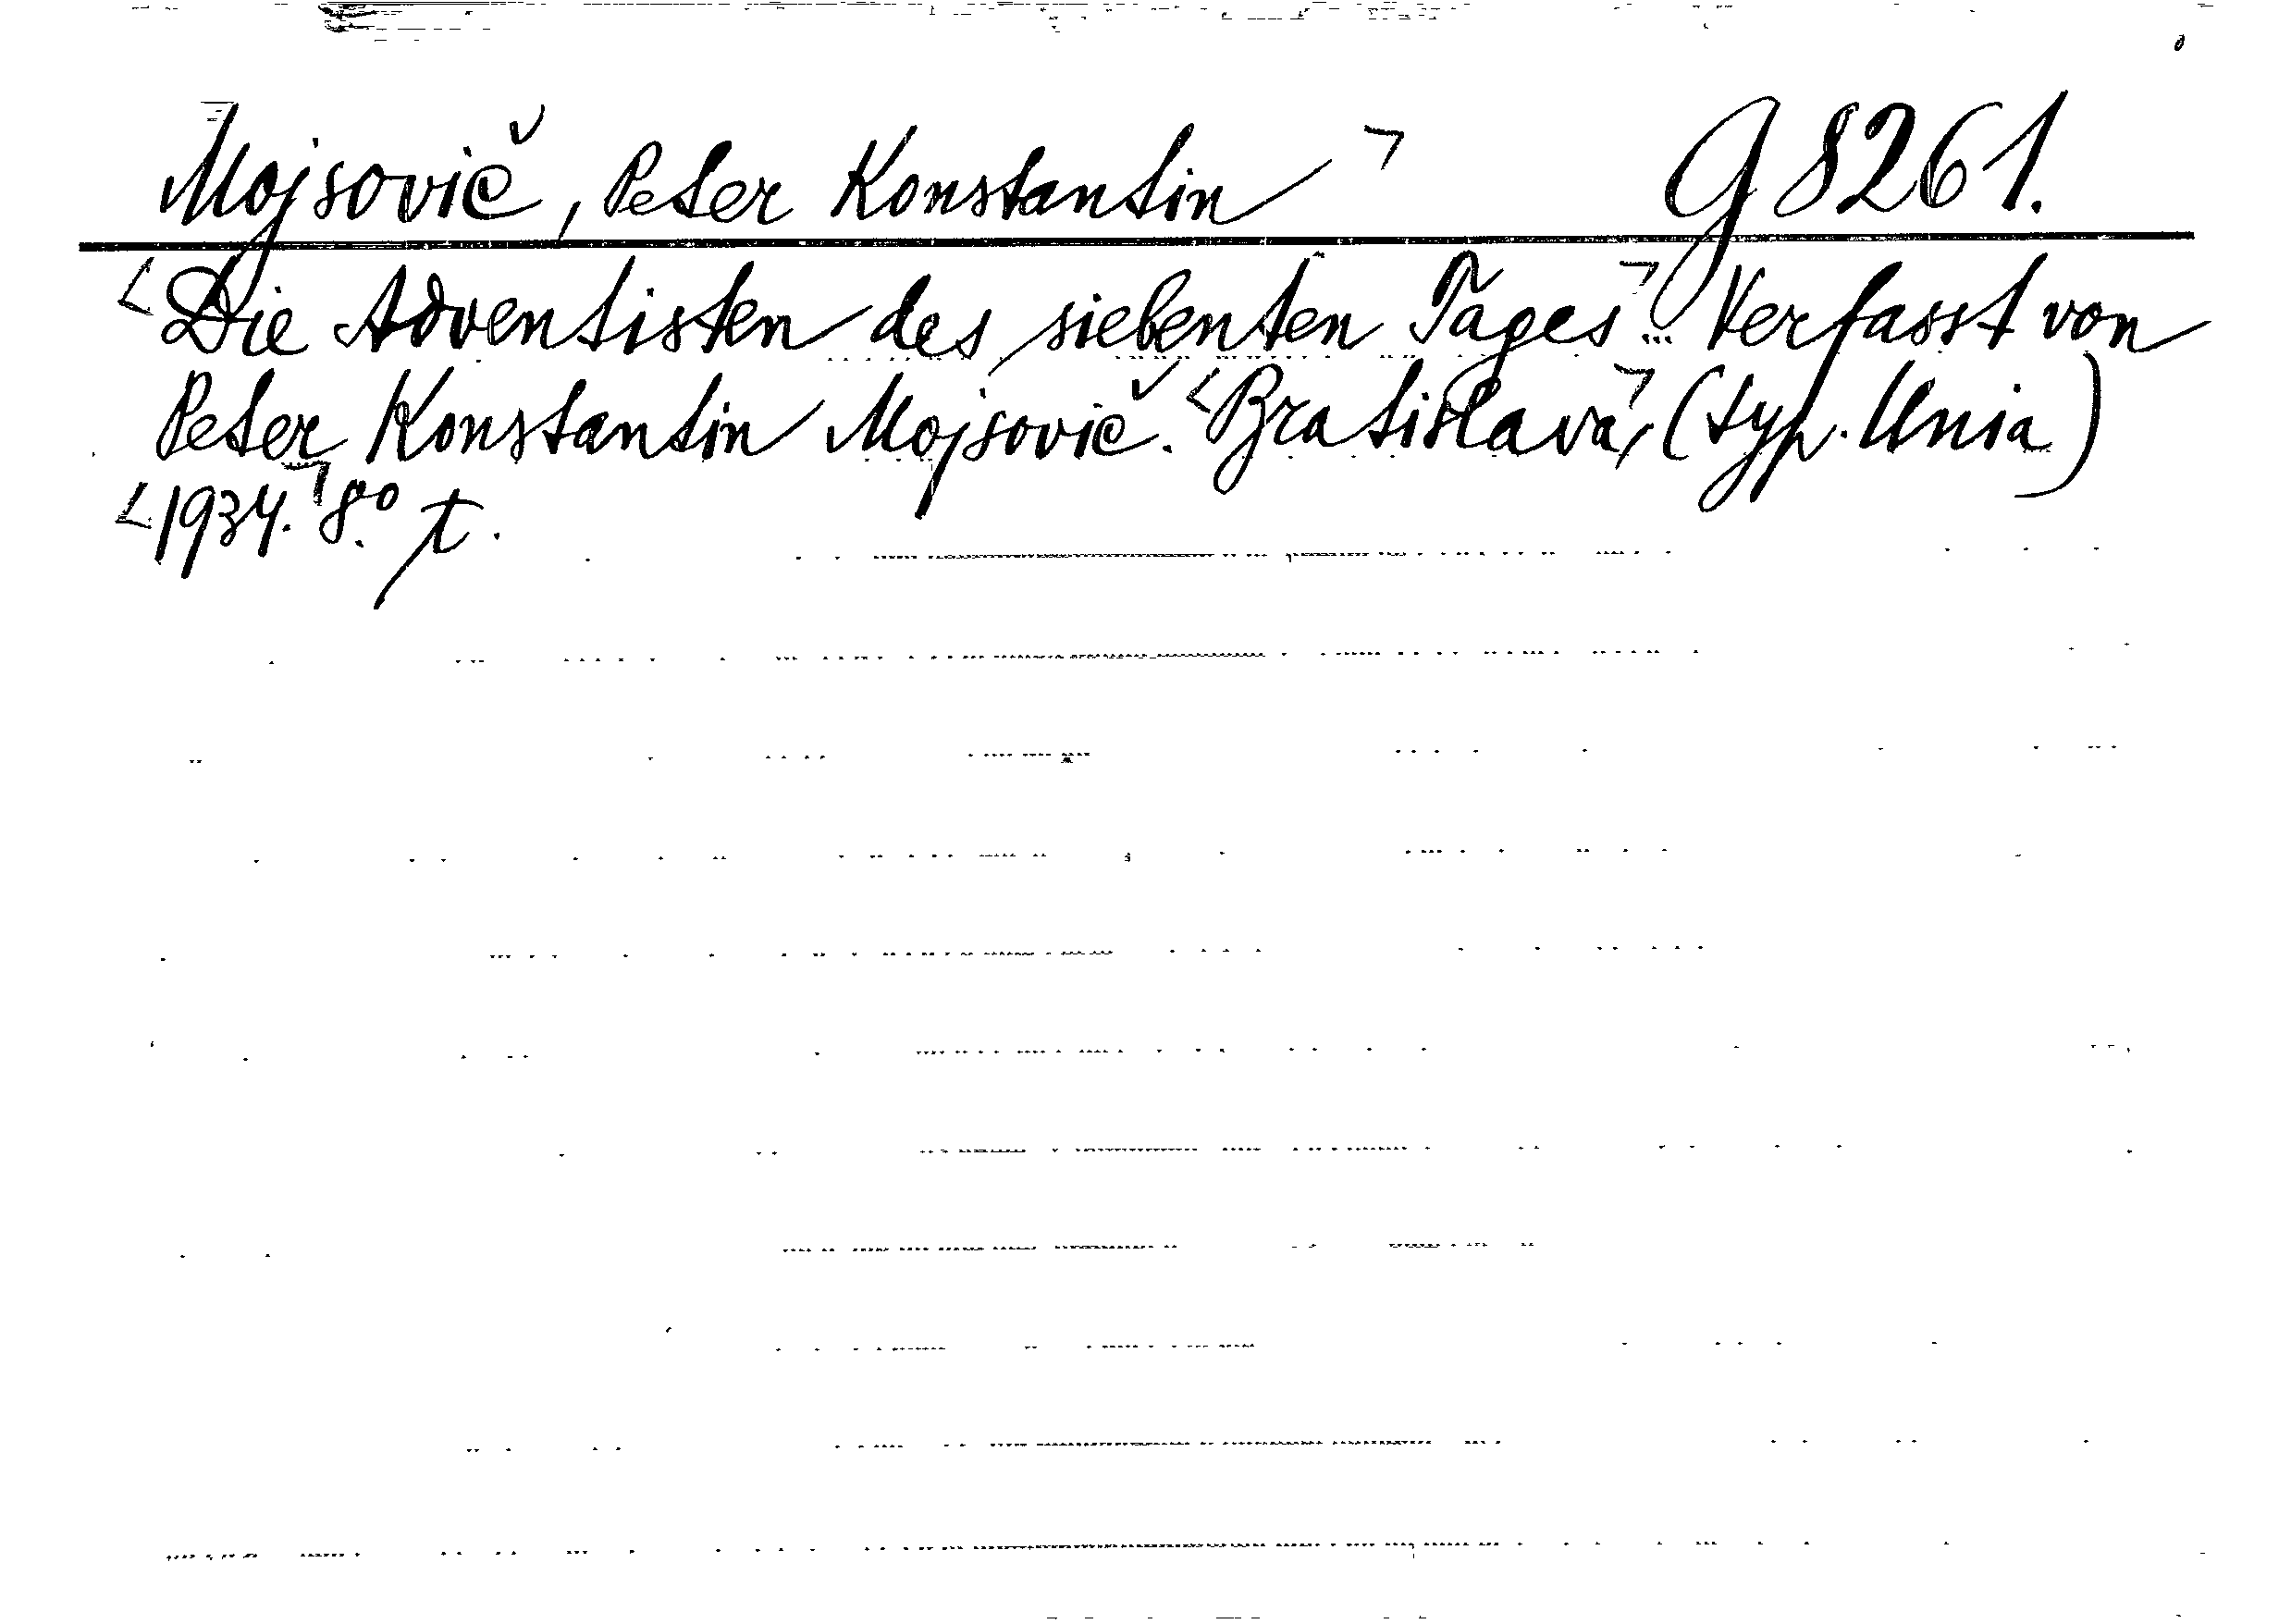 Mojsovič, Peter Konstantin ㄱ G 8261.
<Die Adventisten des siebenten Tages ㄱ... Verfasst von
Peter Konstantin Mojsovič. <Bratislava,ㄱ (typ. Unia)
<1934.ㄱ 8.° t.